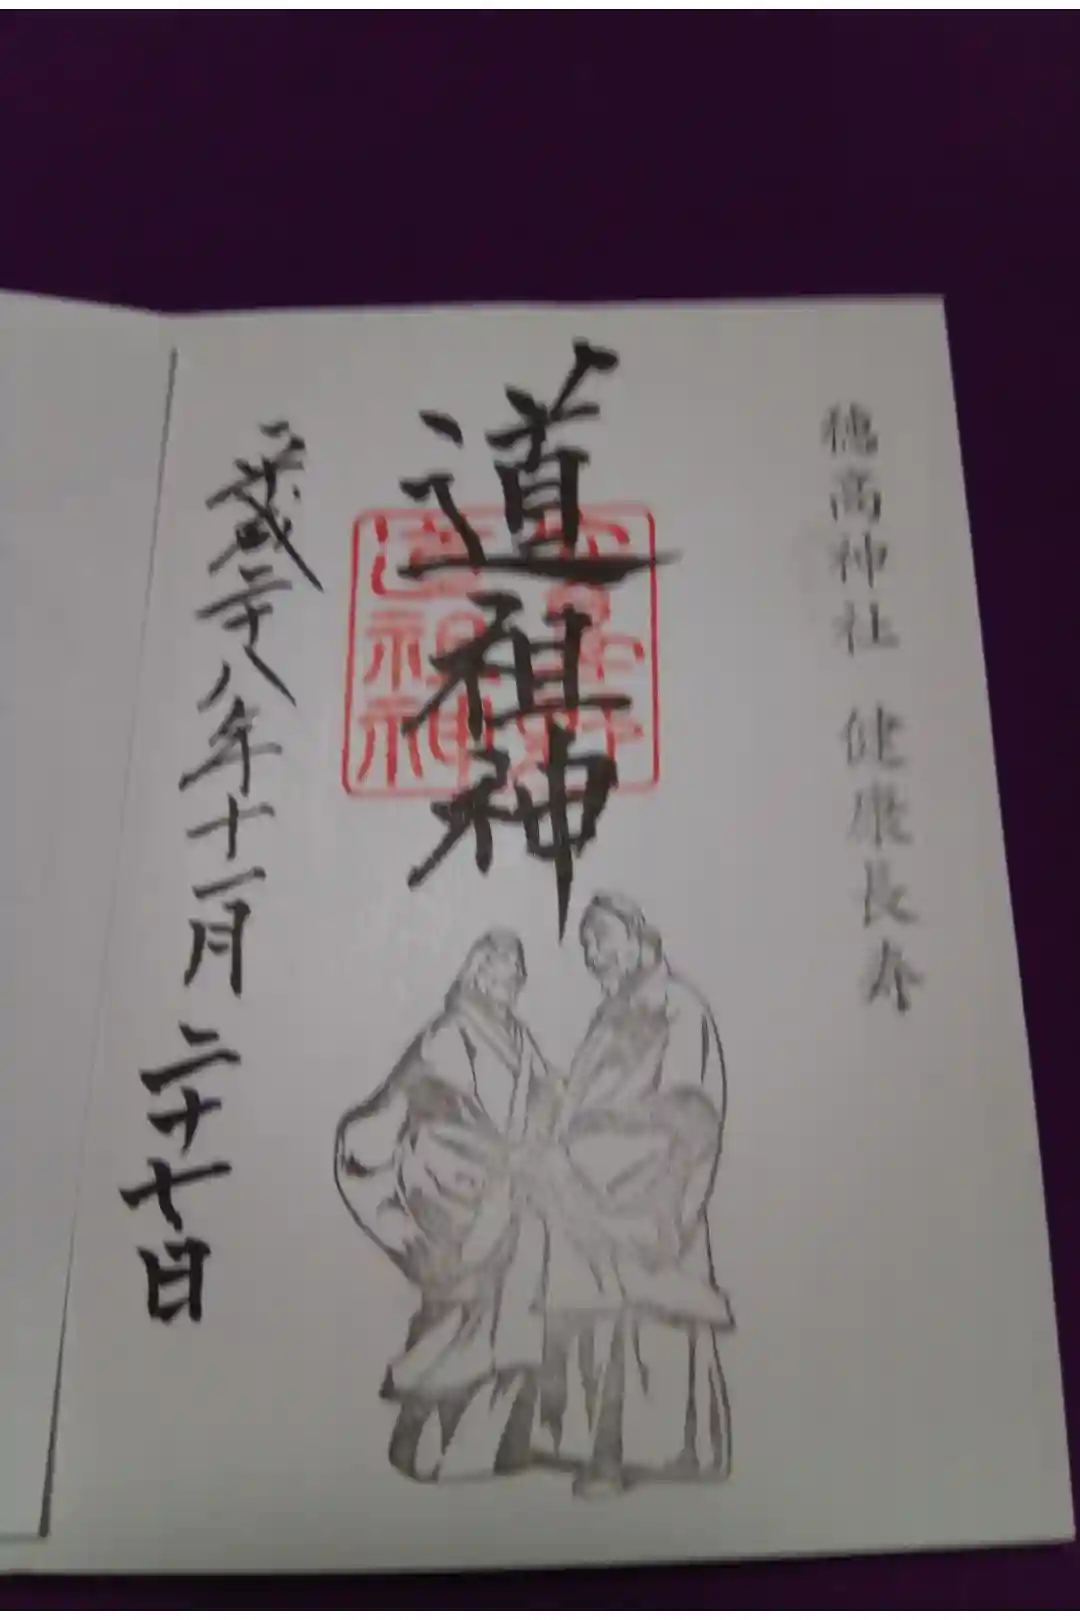 穂高神社 健康長寿
道祖神
安曇野
道祖神
平成二十八年十一月二十七日